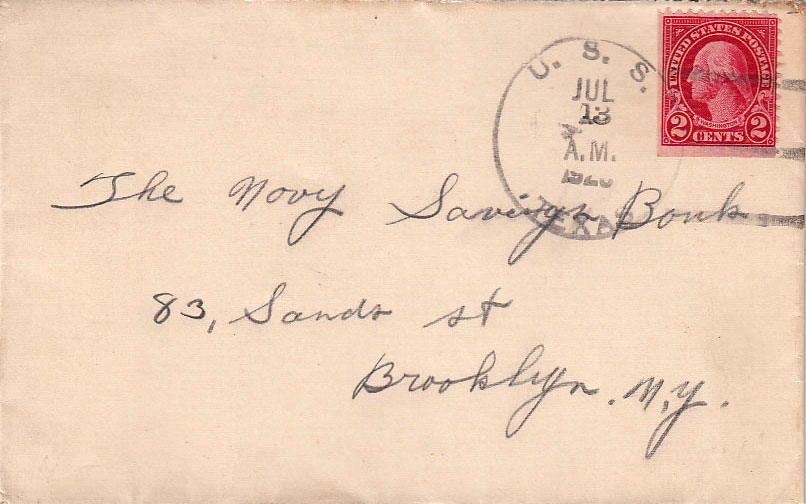 U. S. S.
JUL
13
A.M.
TEXAS
UNITED STATES POSTAGE
WASHINGTON
2 CENTS 2
The Navy Savings Bank
83, Sands st
Brooklyn. N.Y.